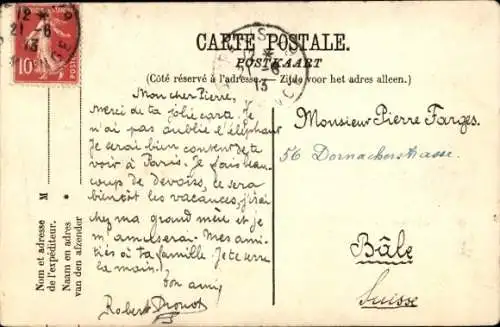 CARTE POSTALE.
POSTKAART
(Côté réservé à l'adresse. Zijde voor het adres alleen.)
12 * 9
21 - 6
13
10
* 6
13
Mon cher Pierre,
Merci de ta jolie carte. Je
n'ai pas oublié l'éléphant
Je serai bien content de te
voir à Paris. Je fais beau-
coup de devoirs, ce sera
bientôt les vacances, j'irai
chez ma grand mère et je
m'amuserai. Mes ami-
tiés à ta famille. Je te serre
la main.
ton ami,
Robert Drouot
Monsieur Pierre Farges.
56 Dornacherstrasse.
Bâle
Suisse
Nom et adresse M
de l'expéditeur.
Naam en adres *
van den afzender